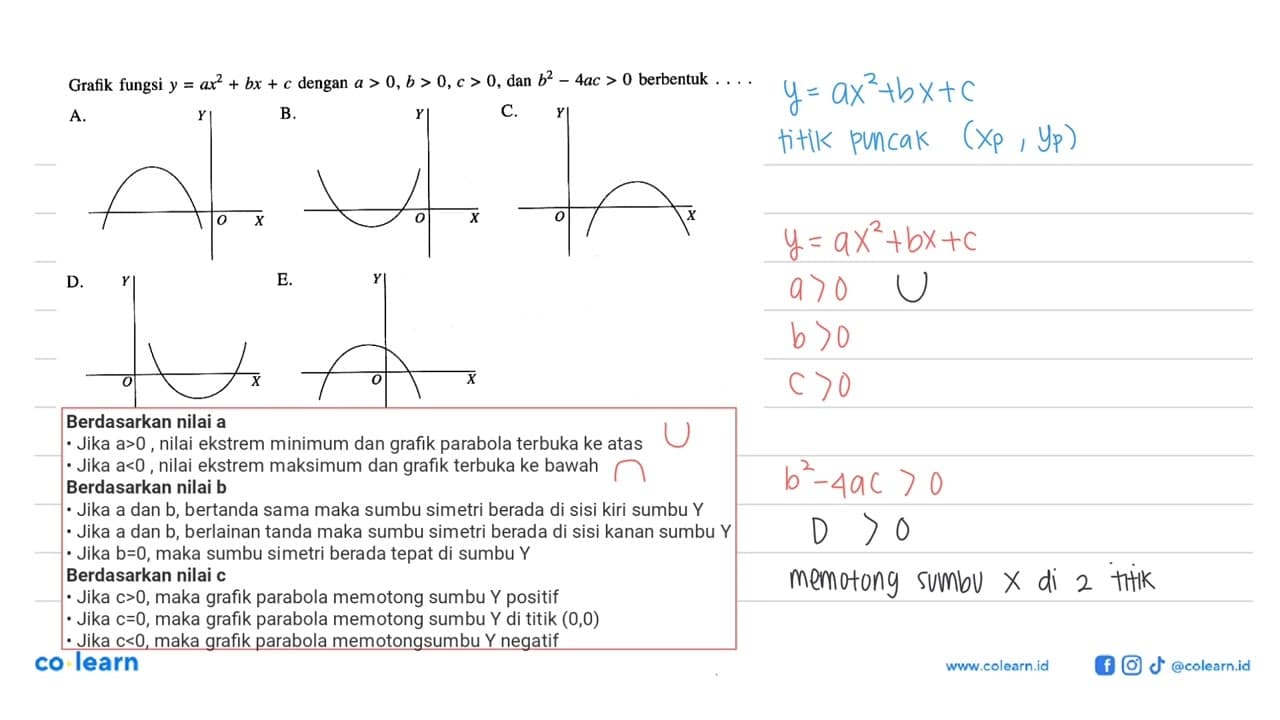 Grafik fungsi y = ax² + bx + c dengan a > 0, b > 0, c > 0, dan b² – 4ac > 0 berbentuk . . . .
A. Y O X
B. Y O X
C. Y O X
D. Y O X
E. Y O X
Berdasarkan nilai a
• Jika a>0 , nilai ekstrem minimum dan grafik parabola terbuka ke atas
• Jika a<0 , nilai ekstrem maksimum dan grafik terbuka ke bawah
Berdasarkan nilai b
• Jika a dan b, bertanda sama maka sumbu simetri berada di sisi kiri sumbu Y
• Jika a dan b, berlainan tanda maka sumbu simetri berada di sisi kanan sumbu Y
• Jika b=0, maka sumbu simetri berada tepat di sumbu Y
Berdasarkan nilai c
• Jika c>0, maka grafik parabola memotong sumbu Y positif
• Jika c=0, maka grafik parabola memotong sumbu Y di titik (0,0)
• Jika c<0, maka grafik parabola memotongsumbu Y negatif
y = ax²+bx+c
titik puncak (xp , yp)
y = ax²+bx+c
a>0
b>0
c>0
b²-4ac > 0
D > 0
memotong sumbu X di 2 titik
co learn
www.colearn.id
@colearn.id